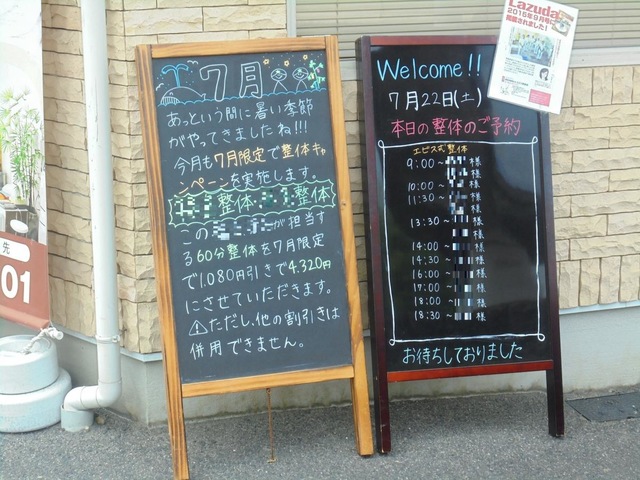 7月
あっという間に暑い季節
がやってきましたね!!!
今月も7月限定で整体キャ
ンペーンを実施します。
整体 整体
この が担当す
る60分整体を7月限定
で1,080円引きで4,320円
にさせていただきます。
⚠ただし、他の割引きは
併用できません。
Welcome!!
7月22日(土)
本日の整体のご予約
エビス式整体
9:00~ 様
様
10:00~ 様
11:30~ 様
様
13:30~ 様
様
14:00~ 様
14:30~ 様
16:00~ 様
17:00~ 様
18:00~ 様
18:30~ 様
お待ちしておりました
Lazuda
2016年9月号に
掲載されました!
先
01